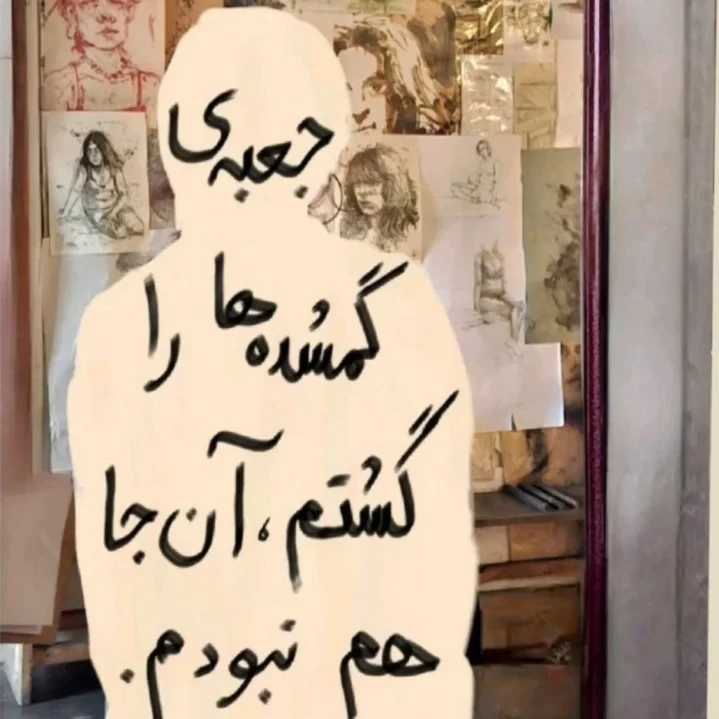 جعبه‌ی
گمشده‌ها را
گشتم، آن‌جا
هم نبودم.